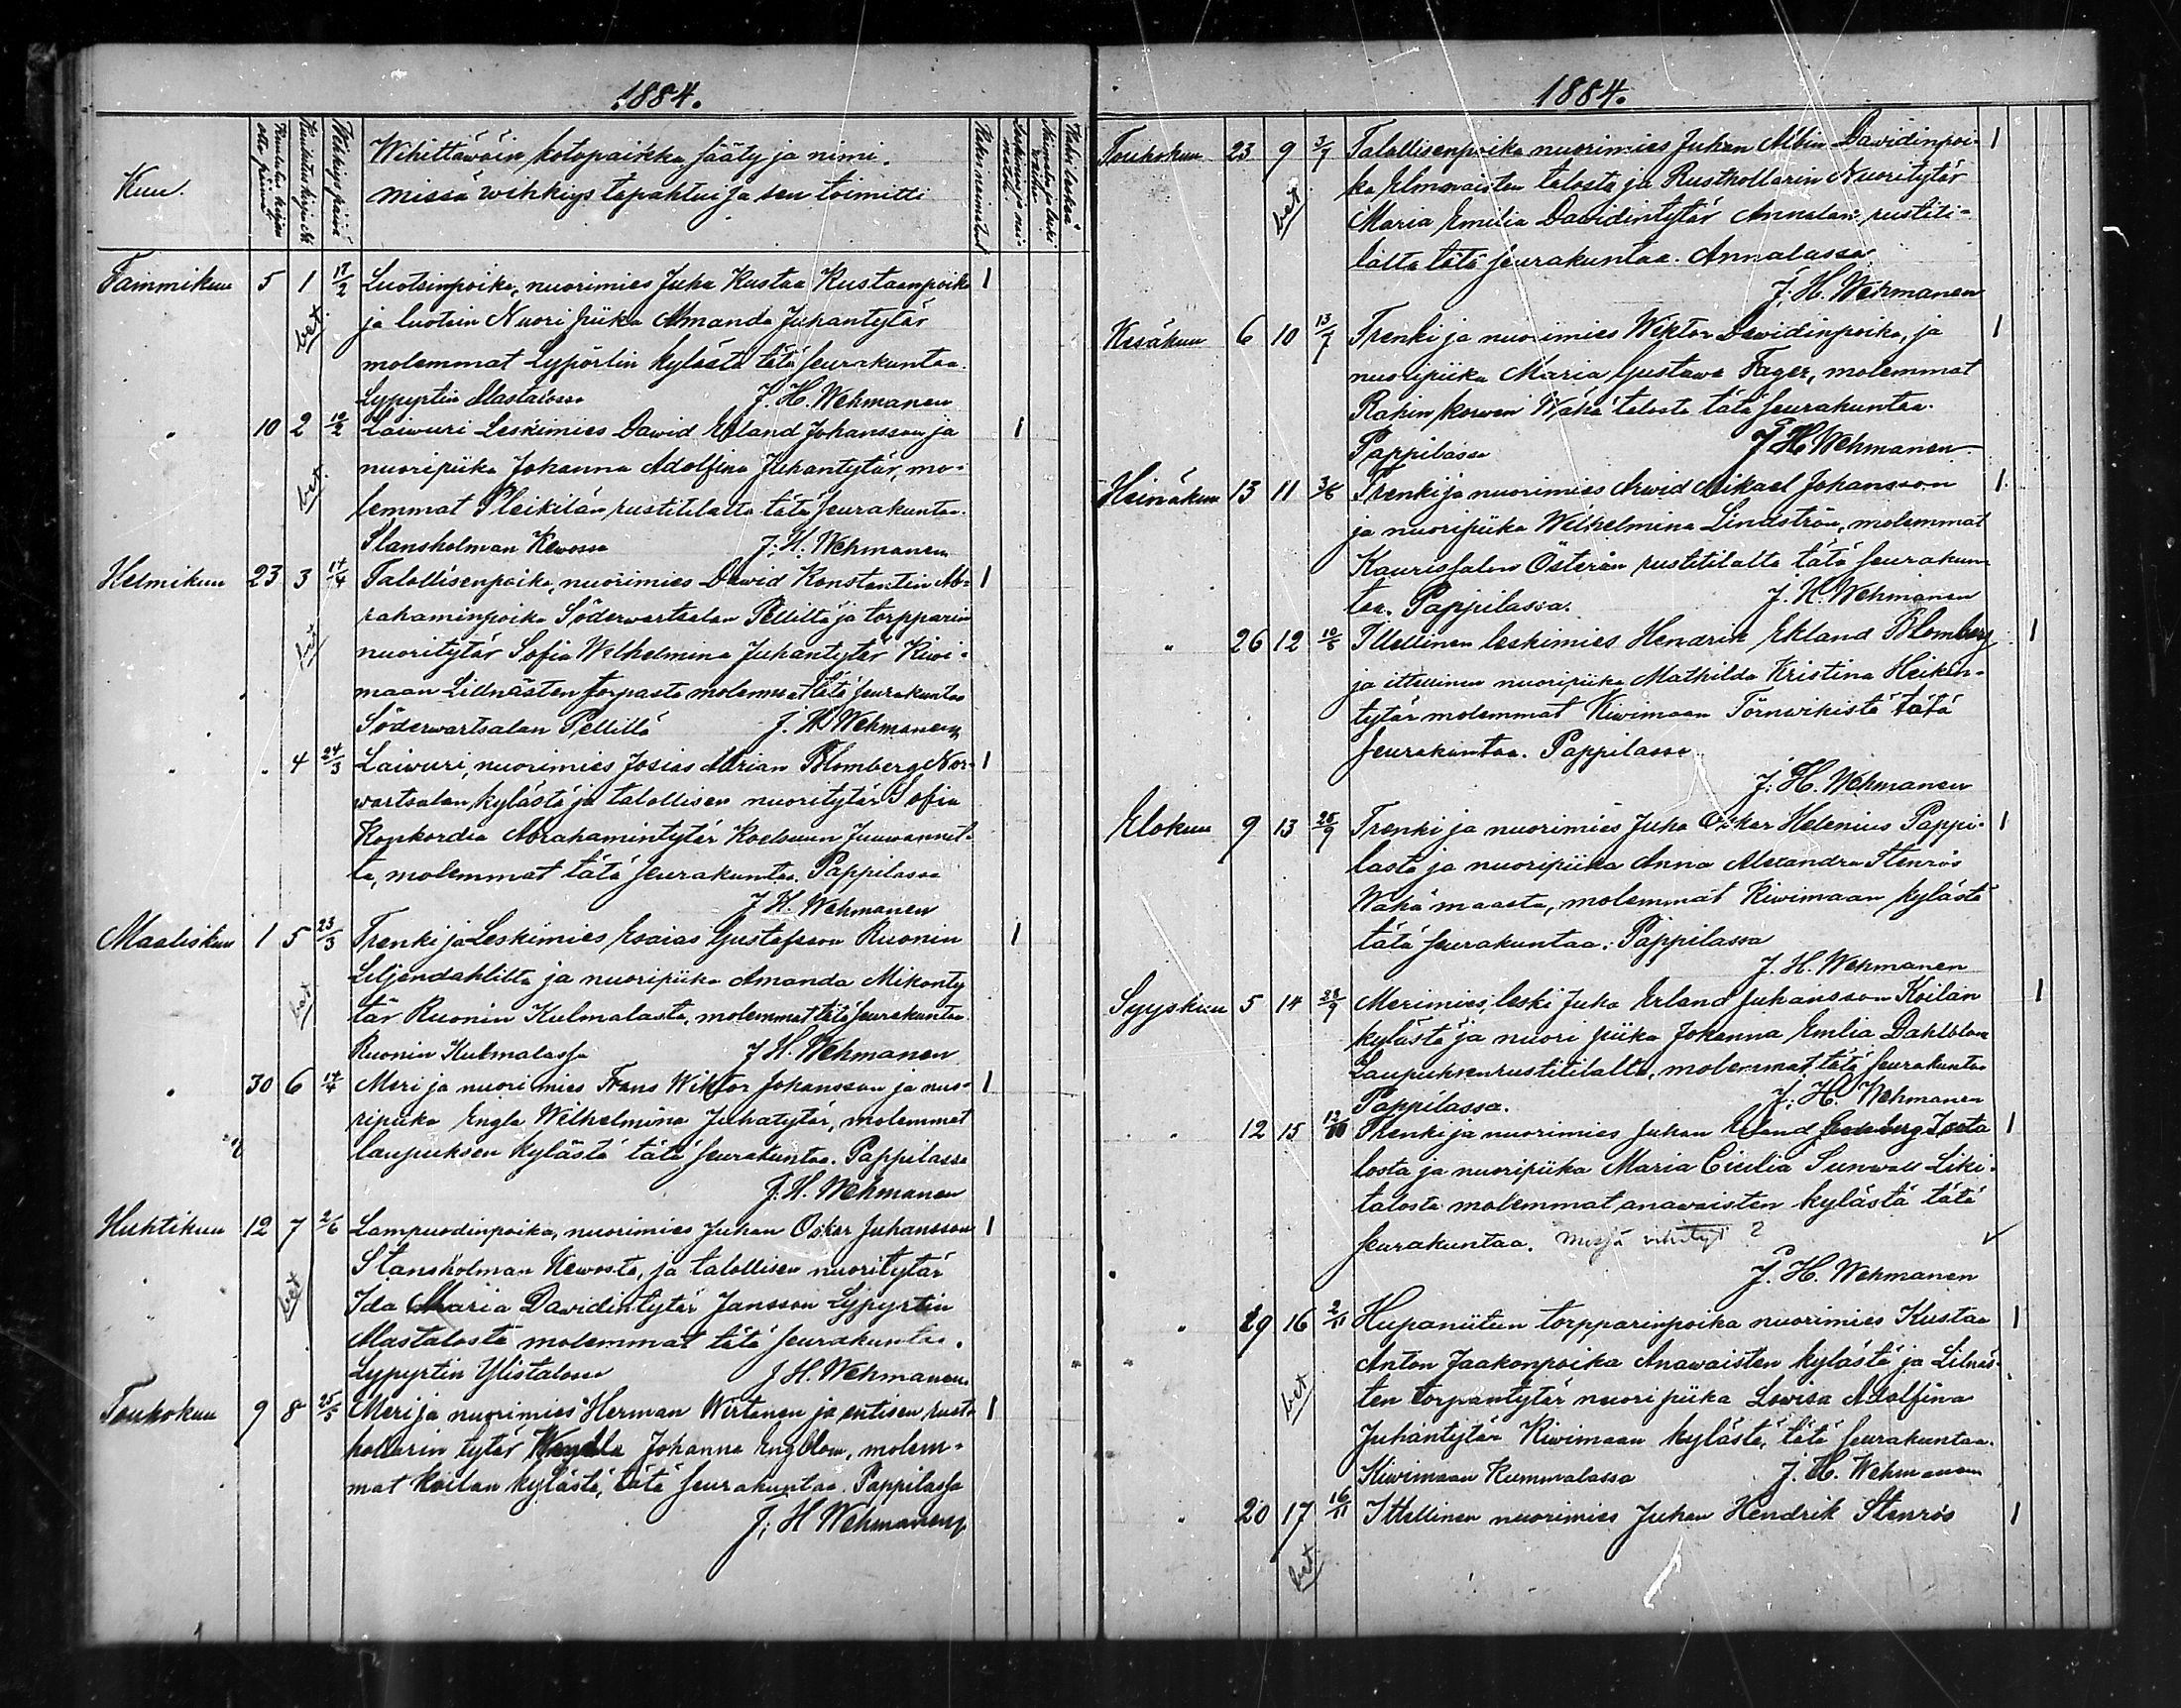 1884.
Kuu.
Wihittäwäin kotopaikka sääty ja nimi.
missä wihkiys tapahtui ja sen toimitti
Tammikuu 5 1 17/2 Luotsinpoika, nuorimies Juha Kustaa Kustaanpoika 1
bet. ja luotsin Nuori piika Amanda Juhantytär
molemmat Lypörtin kylästä tätä seurakuntaa.
Lypyrtin Mastalossa J. H. Wehmanen
" 10 2 10/2 Laiwuri Leskimies Dawid Erland Johansson ja 1
nuoripiika Johanna Adolfina Juhantytär, mo-
bet. lemmat Pleikilän rustitilalta tätä seurakuntaa.
Stansholman Kewossa J. H. Wehmanen
Helmikuu 23 3 14/4 Talollisenpoika, nuorimies Dawid Konstantin Ab- 1
rahaminpoika Söderwartsalan Pelliltä ja torpparin
bet nuoritytär Sofia Wilhelmina Juhantytär Kiwi-
maan Lillnästen torpasta molemmat tätä seurakuntaa
Söderwartsalan Pellillä J. H. Wehmanen
" " 4 24/3 Laiwuri, nuorimies Josias Adrian Blomberg Nor- 1
wartsalan kylästä ja talollisen nuoritytär Sofia
Konkordia Abrahamintytär
ta, molemmat tätä seurakuntaa Pappilassa
J. H. Wehmanen
Maaliskuu 1 5 23/3 Trenki ja Leskimies Esaias Gustafsson Ruonin 1
Liljendahlilta ja nuoripiika Amanda Mikonty
bet tär Ruonin Kulmalasta, molemmat tätä seurakuntaa
Ruonin Kulmalassa J. H. Wehmanen
" 30 6 14/4 Meri ja nuori mies Frans Wiktor Johansson ja nuo- 1
ripiika Engla Wilhelmina Juhatytär, molemmat
laupuksen kylästä tätä seurakuntaa. Pappilassa
J. H. Wehmanen
Huhtikuu 12 7 2/6 Lampuodinpoika, nuorimies Juhan Oskar Juhansson 1
Stansholman Kewosta, ja talollisen nuoritytär
bet Ida Maria Davidintytär Jansson Lypyrtin
Mastalosta molemmat tätä seurakuntaa.
Lypyrtin Ylistalossa J. H. Wehmanen
Toukokuu 9 8 25/5 Meri ja nuorimies Herman Wirtanen ja entisen rust 1
hollarin tytär Johanna Engblom, molem-
mat koilan kylästä, tätä seurakuntaa. Pappilassa
J. H. Wehmanen
1884.
Toukokuu 23 9 3/7 Talollisenpoika nuorimies Juhan Albin Davidinpoi- 1
bet ka Elmnaisten talosta ja Rusthollarin Nuoritytär
Maria Emilia Davidintytär Annalan rustiti-
lalta tätä seurakuntaa. Annalassa
J. H. Wehmanen
Kesäkuu 6 10 13/7 Trenki ja nuorimies Wiktor Dawidinpoika, ja 1
nuoripiika Maria Gustawa Fager, molemmat
Rahin korwen Wähä talosta tätä seurakuntaa.
Pappilassa J. H. Wehmanen
Heinäkuu 13 11 3/8 Trenki ja nuorimies Arwid Mikael Johansson 1
ja nuoripiika Wilhelmina Lindström, molemmat
Kaurissalon Österån rustitilalta tätä seurakun-
taa. Pappilassa. J. H. Wehmanen
" 26 12 10/8 Itellinen leskimies Hendrik Ekland Blomberg 1
ja itellinen nuoripiika Mathilda Kristina Heikin-
tytär molemmat Kiwimaan Törnwikistä tätä
seurakuntaa. Pappilassa
J. H. Wehmanen
Elokuu 9 13 28/9 Trenki ja nuorimies Juha Oskar Helenius Pappi- 1
lasta ja nuoripiika Anna Alexandra Stenrös
Wähä maasta, molemmat Kiwimaan kylästä
tätä seurakuntaa. Pappilassa
J. H. Wehmanen
Syyskuu 5 14 28/9 Merimies, leski Juha Erland Juhansson Koilan 1
kylästä ja nuori piika Johanna Emlia Dahlblom
Laupuksen rustitilalta, molemmat tätä seurakuntaa
Pappilassa. J. H. Wehmanen
" 12 15 12/10 Trenki ja nuorimies Juhan Erland 1
losta ja nuoripiika Maria Cicilia Sunwall Liki-
talosta molemmat anawaisten kylästä tätä
seurakuntaa. Missä vihityt?
J. H. Wehmanen
" 29 16 2/11 Hupaniitun torpparinpoika nuorimies Kustaa 1
Anton Jaakonpoika Anawaisten kylästä ja Lilnäs-
bet ten torpantytär nuori piika Lowisa Adolfina
Juhantytär Kiwimaan kylästä, tätä seurakuntaa.
Kiwimaan Kummalassa J. H. Wehmanen
" 20 17 16/11 Itellinen nuorimies Juhan Hendrik Stenrös 1
bet